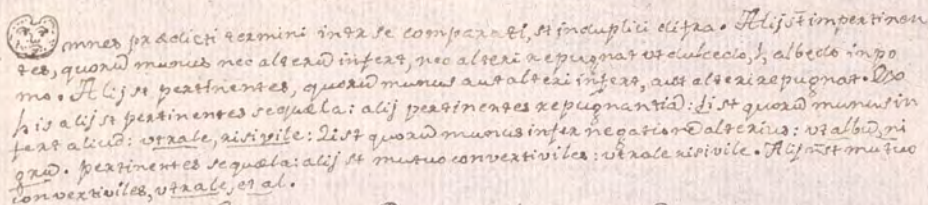 Omnes prædicti termini inter se comparati, st in duplici ditra. Alij st impertinen
tes, quorũ munus nec alterũ infert, nec alteri repugnat vt dulcedo, & albedo in po
mo. Alij st pertinentes, quorũ munus aut alteri infert, aut alteri repugnat. Ex
his alij st pertinentes sequæla: alij pertinentes repugnantiã: Li st quorũ munus in
fert aliud: vt rale, risivile: Li st quorũ munus infer negationẽ alterius: vt albũ, ni
grũ. pertinentes sequæla: alij st mutuo convertiviles: vt rale risivile. Alij ñ st mutuo
convertiviles, vt rale, et al.